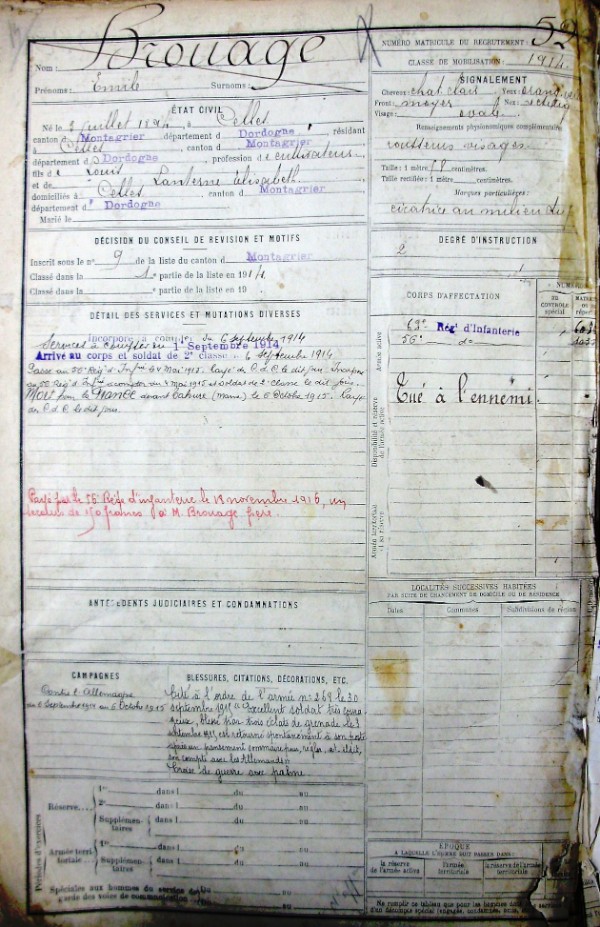 Brouage
Nom :
Prénoms : Emile Surnoms :
NUMÉRO MATRICULE DU RECRUTEMENT :
CLASSE DE MOBILISATION : 1914
ÉTAT CIVIL
Né le 3 Juillet à Celles
canton d Montagrier département d Dordogne, résidant
à Celles, canton d Montagrier
département d Dordogne, profession de cultivateur
fils de Louis
et de Lanterne Elisabeth
domiciliés à Celles, canton d Montagrier
département d Dordogne
Marié le
SIGNALEMENT
Cheveux : chat clair Yeux :
Front : moyen Nez :
Visage : ovale
Renseignements physionomiques complémentaires
visages
Taille : 1 mètre centimètres.
Taille rectifiée : 1 mètre centimètres.
Marques particulières :
cicatrice au milieu du
DÉCISION DU CONSEIL DE REVISION ET MOTIFS
Inscrit sous le no 9 de la liste du canton d Montagrier
Classé dans la 1e partie de la liste en 1914
Classé dans la partie de la liste en 19
DEGRÉ D'INSTRUCTION
2
DÉTAIL DES SERVICES ET MUTATIONS DIVERSES
Incorporé à compter du 6 septembre 1914
Services à compter du 1er Septembre 1914,
Arrivé au corps et soldat de 2e classe le 6 septembre 1914.
Passé au 56e Rég' d'Infrie le 4 Mai 1915.
au 56 Rég' d'Infie à compter du 4 mai 1915 et soldat de 2e classe le dit jour.
Mort pour la FRANCE devant Tahure (Marne) le 6 Octobre 1915.
du C.d.C. le dit jour.
Payé par le 56e Rég' d'infanterie le 18 novembre 1916, un
secours de 150 francs à M. Brouage père.
CORPS D'AFFECTATION
NUMÉRO
au contrôle spécial
Armée active
63e Rég' d'Infanterie
56e do
Disponibilité et réserve de l'armée active
Tué à l'ennemi.
Armée territoriale et sa réserve
ANTÉCÉDENTS JUDICIAIRES ET CONDAMNATIONS
LOCALITÉS SUCCESSIVES HABITÉES
PAR SUITE DE CHANGEMENT DE DOMICILE OU DE RÉSIDENCE
Dates Communes Subdivisions de région
CAMPAGNES
Contre l'Allemagne
du 6 Septembre 1914 au 6 Octobre 1915
BLESSURES, CITATIONS, DÉCORATIONS, ETC.
Cité à l'ordre de l'armée no 269 le 30
septembre 1915 "Excellent soldat très coura
geux, blessé par trois éclats de grenade le
septembre 1915, est retourné spontanément à son poste
après un pansement sommaire pour régler, et disait,
son compte avec les Allemands"
Croix de guerre avec palme
Périodes d'exercices
Réserve
1re dans l du au
2e dans l du au
Supplémentaires dans l du au
Armée territoriale
1re dans l du au
Supplémentaires dans l du au
Spéciales aux hommes du service de
garde des voies de communication
ÉPOQUE
À LAQUELLE L'HOMME DOIT PASSER DANS :
la réserve de l'armée active
l'armée territoriale
la réserve de l'armée territoriale